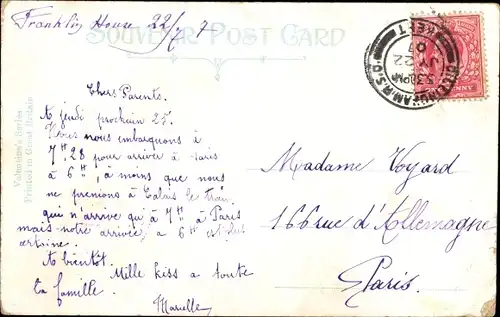 Franklin House 22/7 7
SOUVENIR POST CARD
Chers Parents.
A jeudi prochain 25.
Nous nous embarquons à
7H 28 pour arriver à Paris
à 6H, à moins que nous
ne prenions à Calais le train
qui n'arrive qu'à 7H à Paris
mais notre arrivée à 6H est plus
certaine.
A bientôt.
Mille kiss a toute
la famille.
Valentine's Series
Printed in Great Britain
GILLINGHAM R.S.O.
KENT
5.30 PM
JY 22
07
Madame Voyard
166 rue d'Allemagne
Paris.